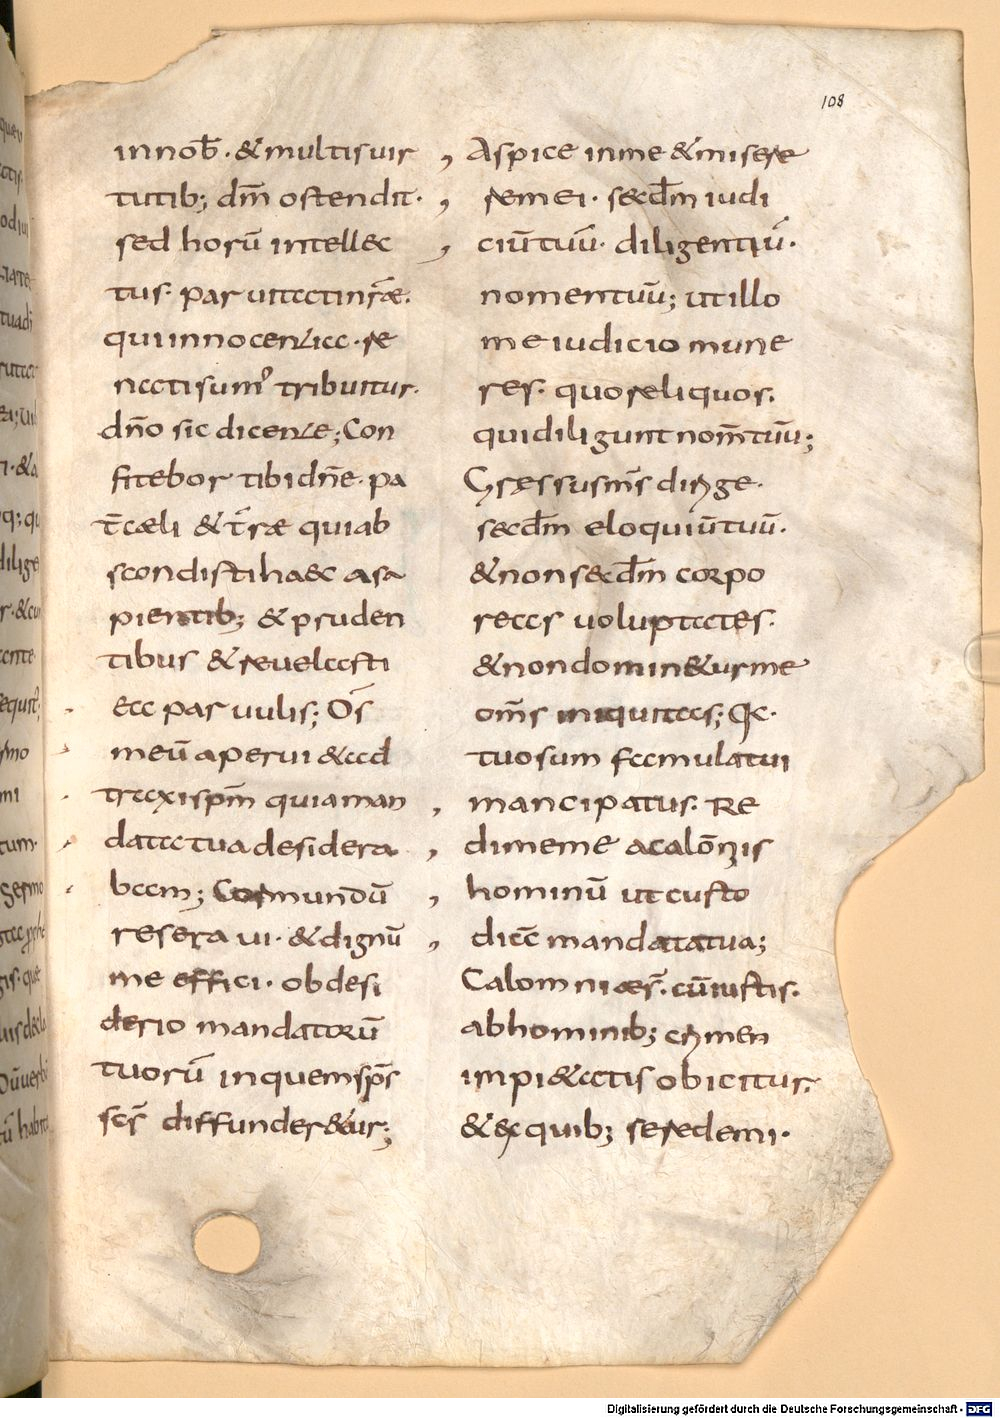 108
in nob̄. & multis uir
tutib; dm̄ ostendit.
sed horū intellec
tus. paruitatin r̄ae.
qui innocentiae. re
nati sumꝰ tribuitur.
dn̄o sic dicente; Con
fitebor tibi dn̄e. pa
t̄ caeli & t̄rae quia b
scondisti haec a sa
pientib; & pruden
tibus & reuelasti
ea paruulis; Ōs
meū aperui & ad
traxi sp̄m quia man
data tua desidera
bam; Cor mundū
resera ui. & dignū
me effici. ob desi
derio mandatorū
tuorū in quem sp̄s
sc̄s diffunderetur;
Aspice in me & misere
re mei. secdm̄ iudi
ciū tuū. diligentiū.
nomen tuū; ut illo
me iudicio mune
res. quo reliquos.
qui diligunt nom̄ tuū;
Gressus m̄s dirige.
secdm̄ eloquiū tuū.
& non secdm̄ corpo
reas uoluptates.
& non dominetur me
om̄s iniquitas; Qa
tuo sum famulatui
mancipatus. Re
dime me a calōniis
hominū ut custo
diā mandata tua;
Calomniaēs. cū iustis.
ab hominib; crimen
impietatis obicitur.
& ex quib; se redemi.
Digitalisierung gefördert durch die Deutsche Forschungsgemeinschaft - DFG